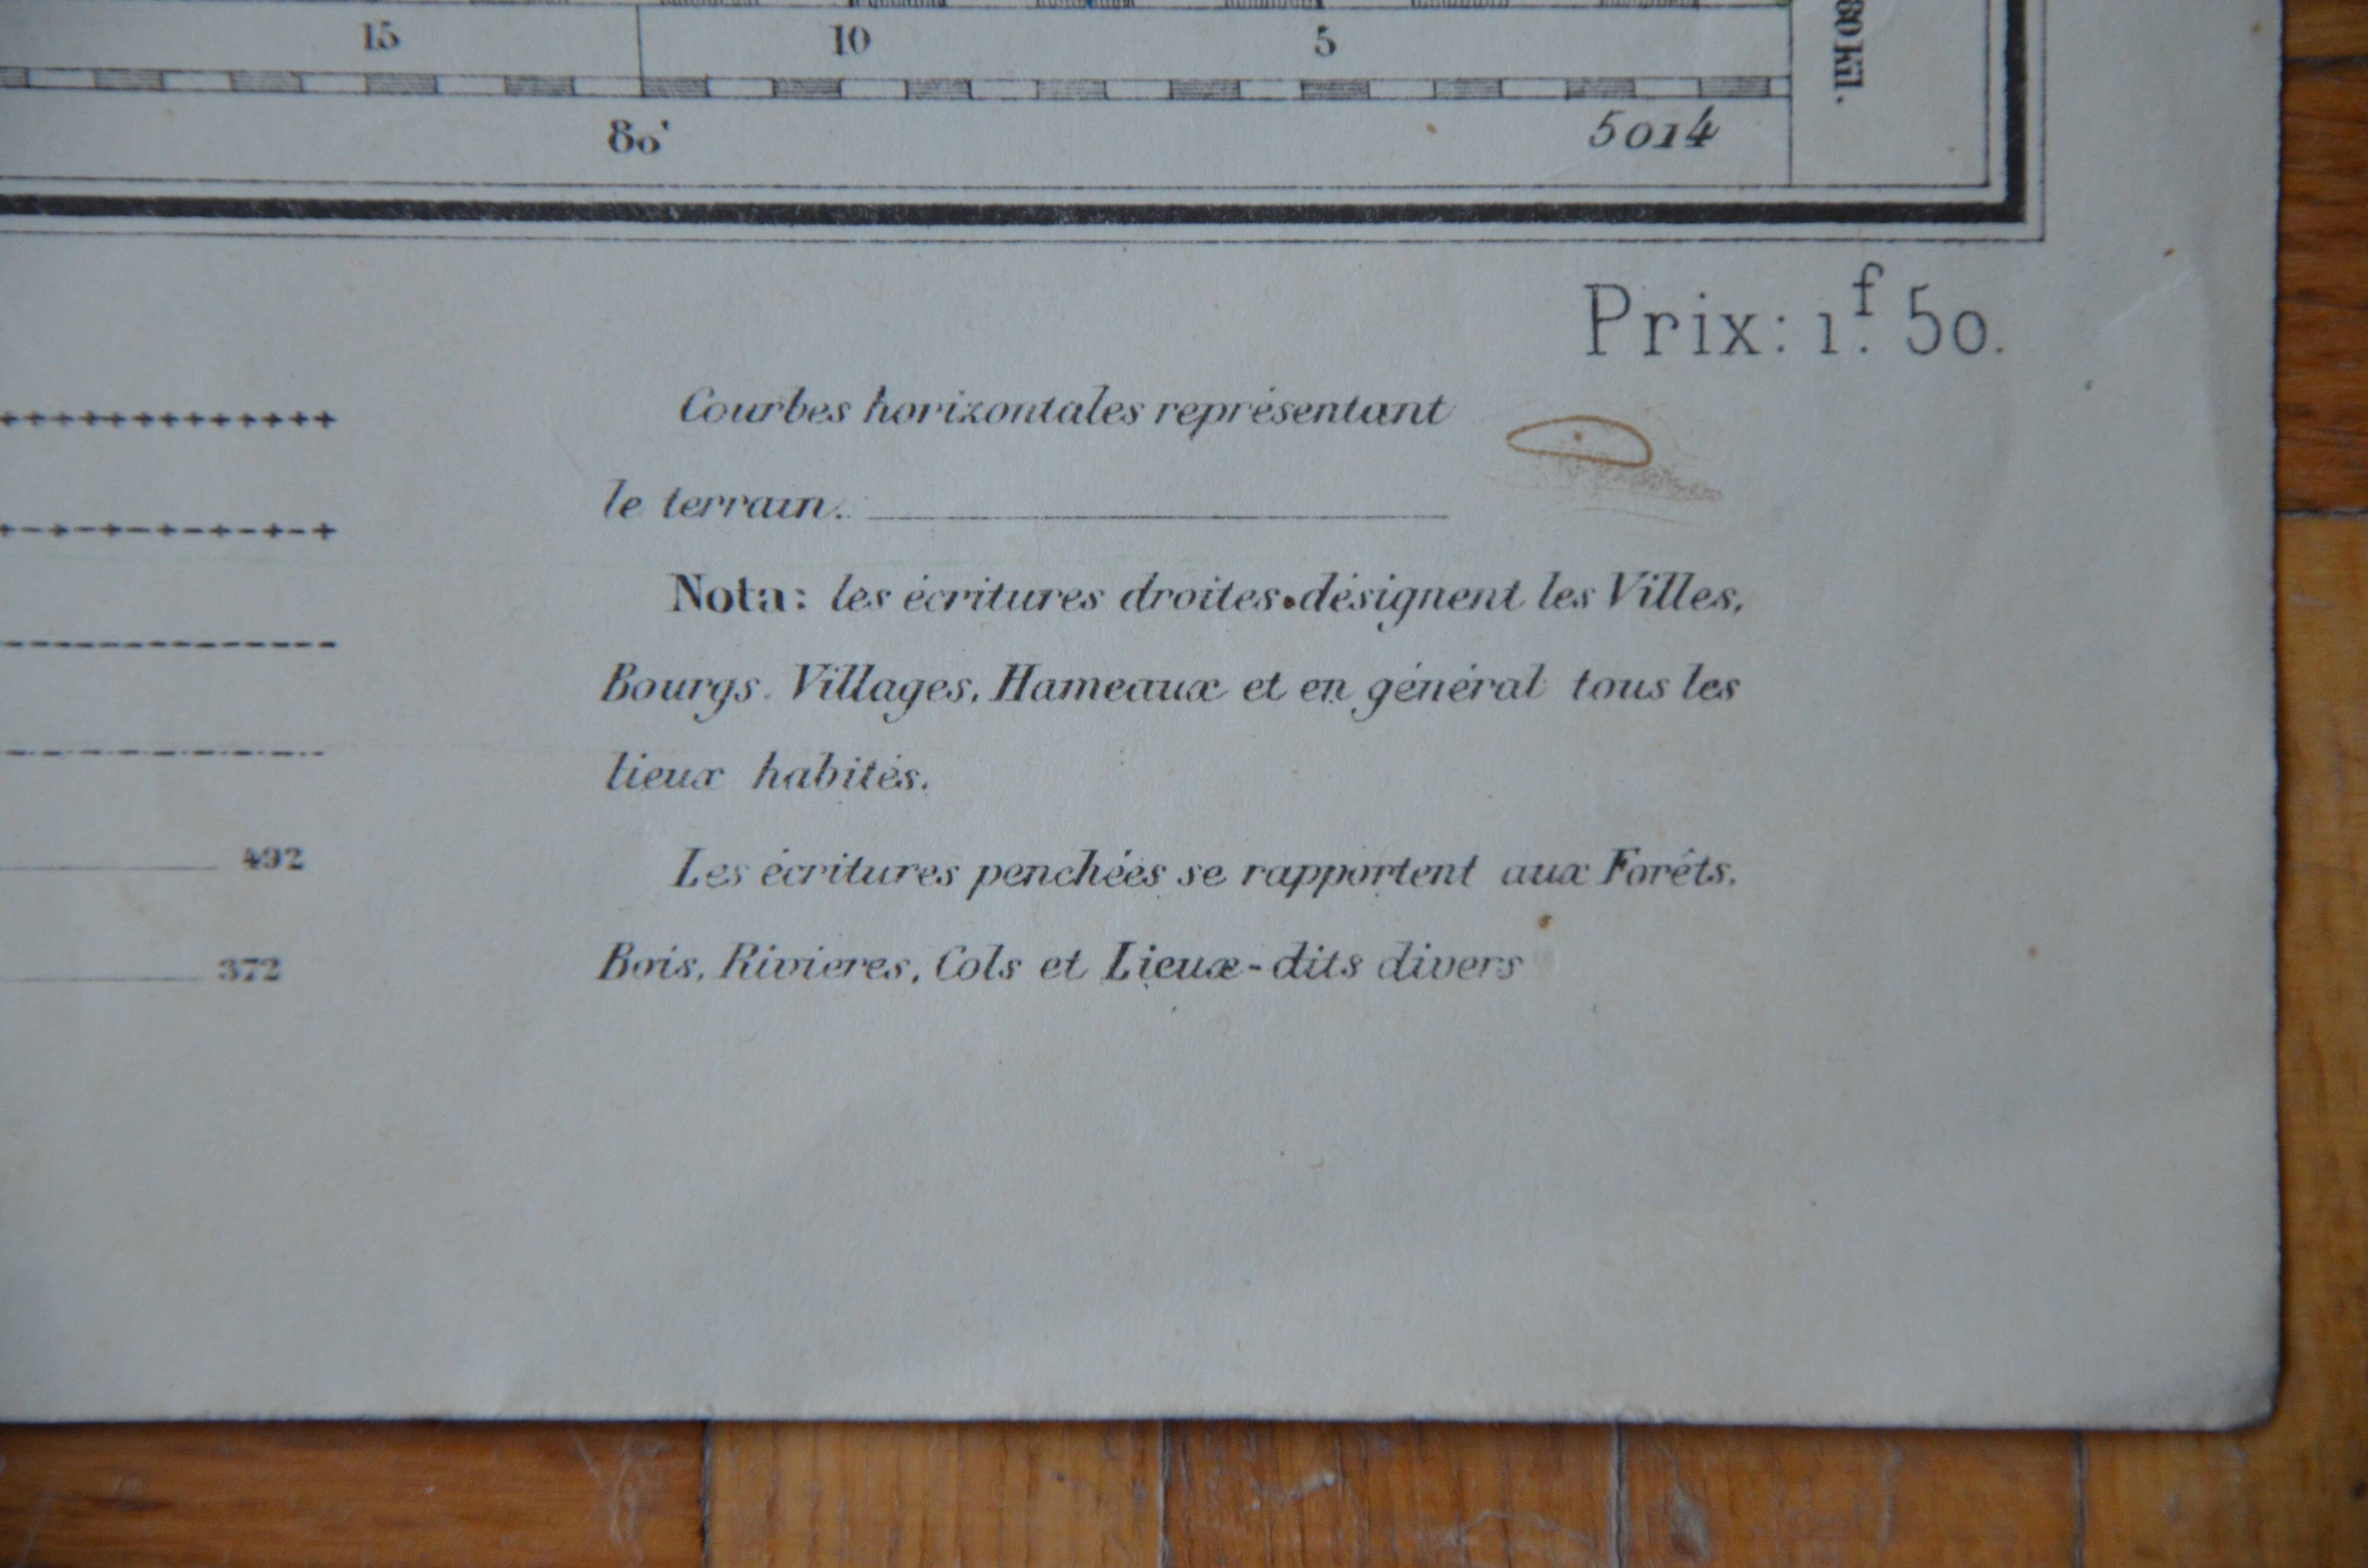 15 10 5
80 Kil.
80' 5014
Prix: 1f. 50.
Courbes horizontales représentant
le terrain.
Nota: les écritures droites désignent les Villes,
Bourgs. Villages, Hameaux et en général tous les
lieux habités.
492
Les écritures penchées se rapportent aux Forêts.
372
Bois, Rivieres, Cols et Lieux-dits divers